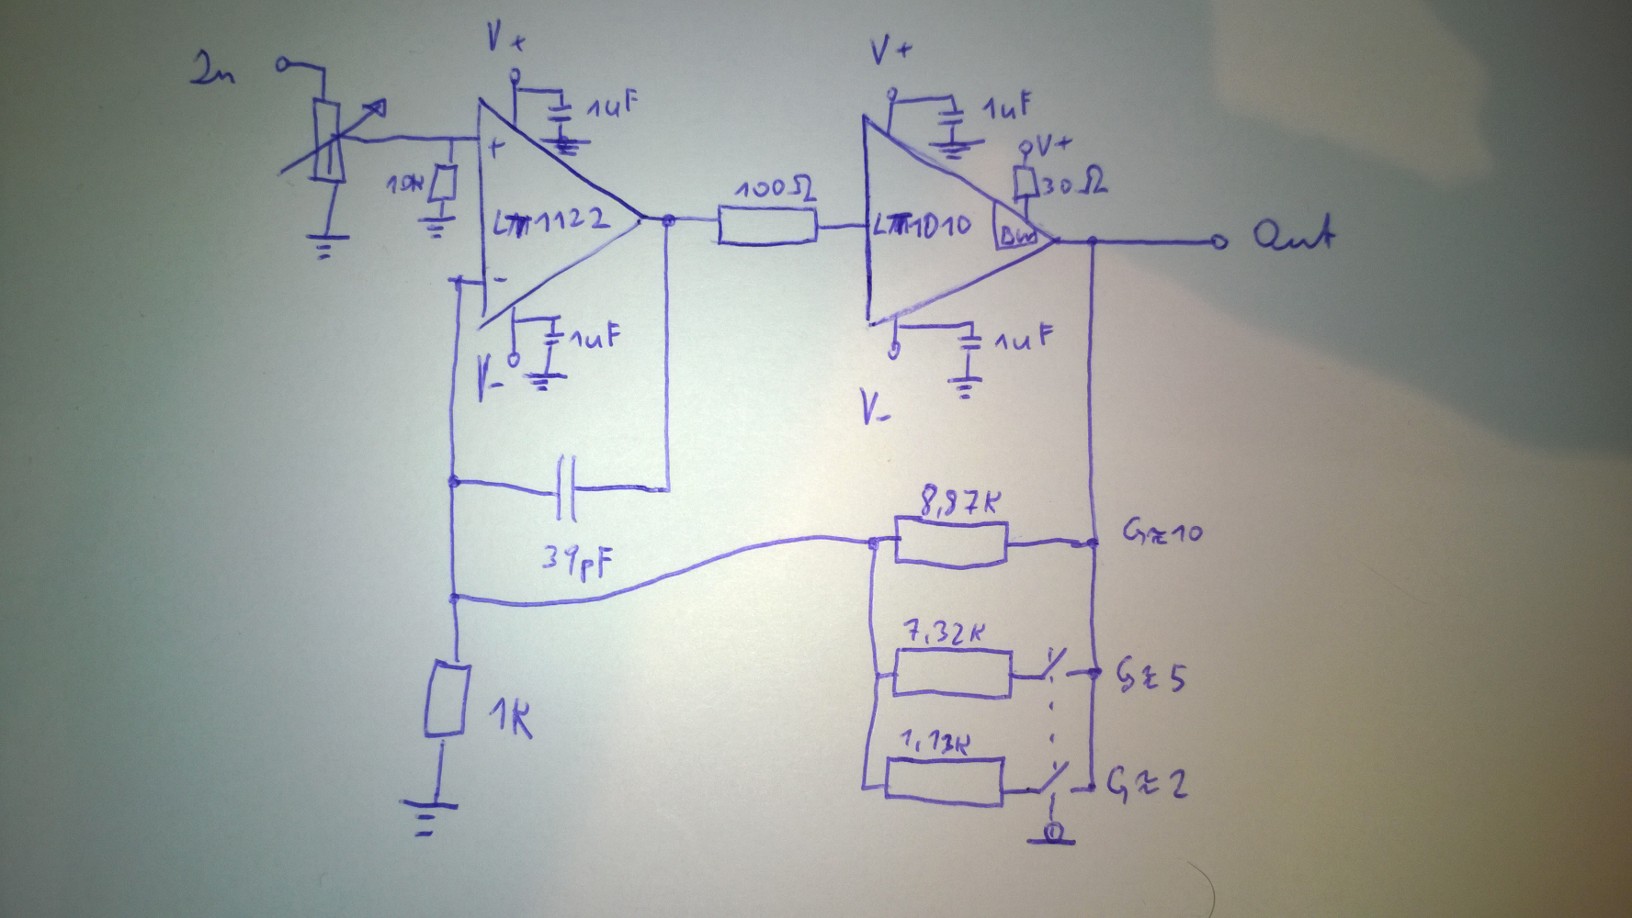 In
V+
1uF
10K
+
LT1122
-
V-
1uF
100Ω
V+
1uF
V+
30Ω
LT1010
Out
V-
1uF
39pF
1K
8,87K
G≈10
7,32K
G≈5
1,13K
G≈2